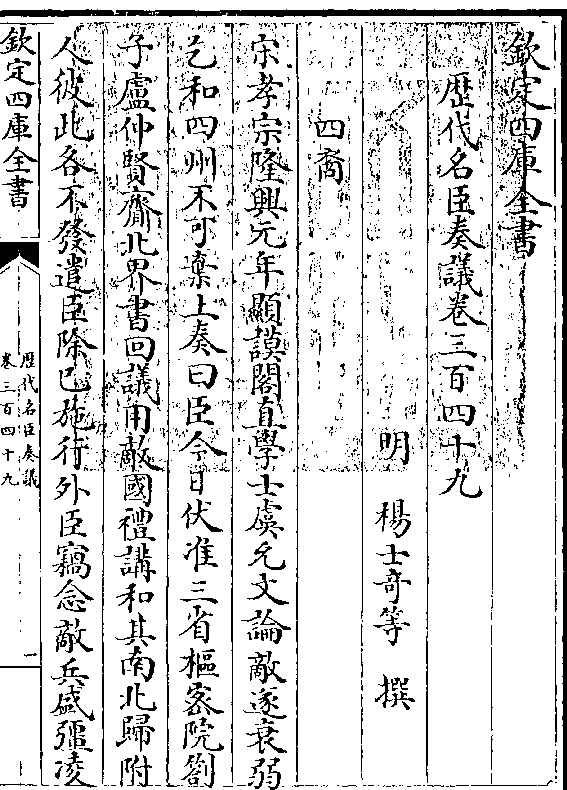 欽定四庫全書
歷代名臣奏議卷三百四十九
明 楊士竒等 撰
四裔
宋孝宗隆興元年顯謨閣直學士虞允文論敵逐衰弱
乞和四州不可棄上奏曰臣今日伏准三省樞宻院劄
子盧仲賢齎北界書回議用敵國禮講和其南北歸附
人彼此各不發遣臣除已施行外臣竊念敵兵盛彊凌
欽定四庫全書
歷代名臣奏議
卷三百四十九
一